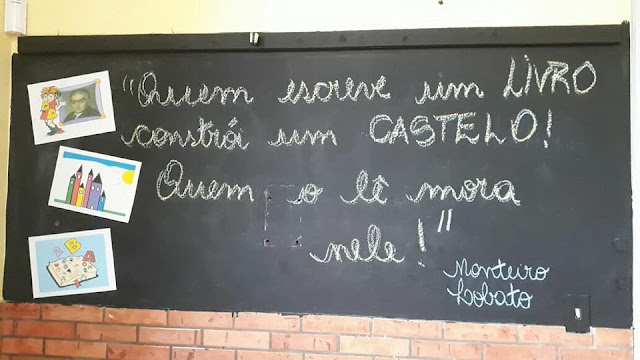 "Quem escreve um LIVRO
constrói um CASTELO!
Quem o lê mora
nele!"
Monteiro
Lobato
B
B
A